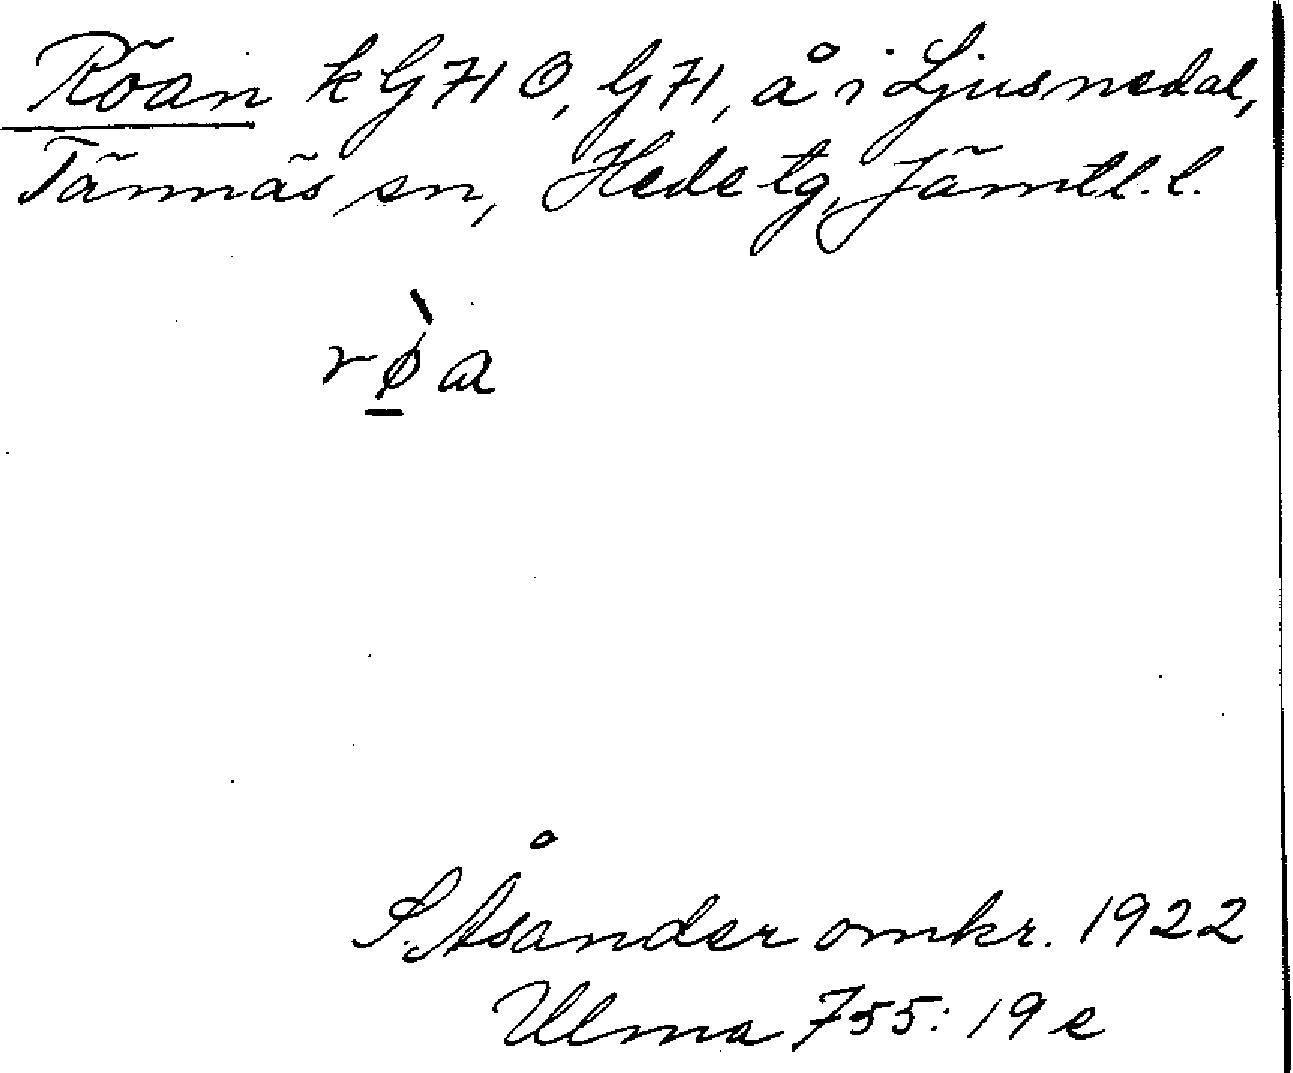 Röan k G 71 O, G 71, å i Ljusnedal,
Tännäs sn, Hede tg, Jämtl. l.
rø̠̀a
S. Åsander omkr. 1922
Ulma 755: 19 e